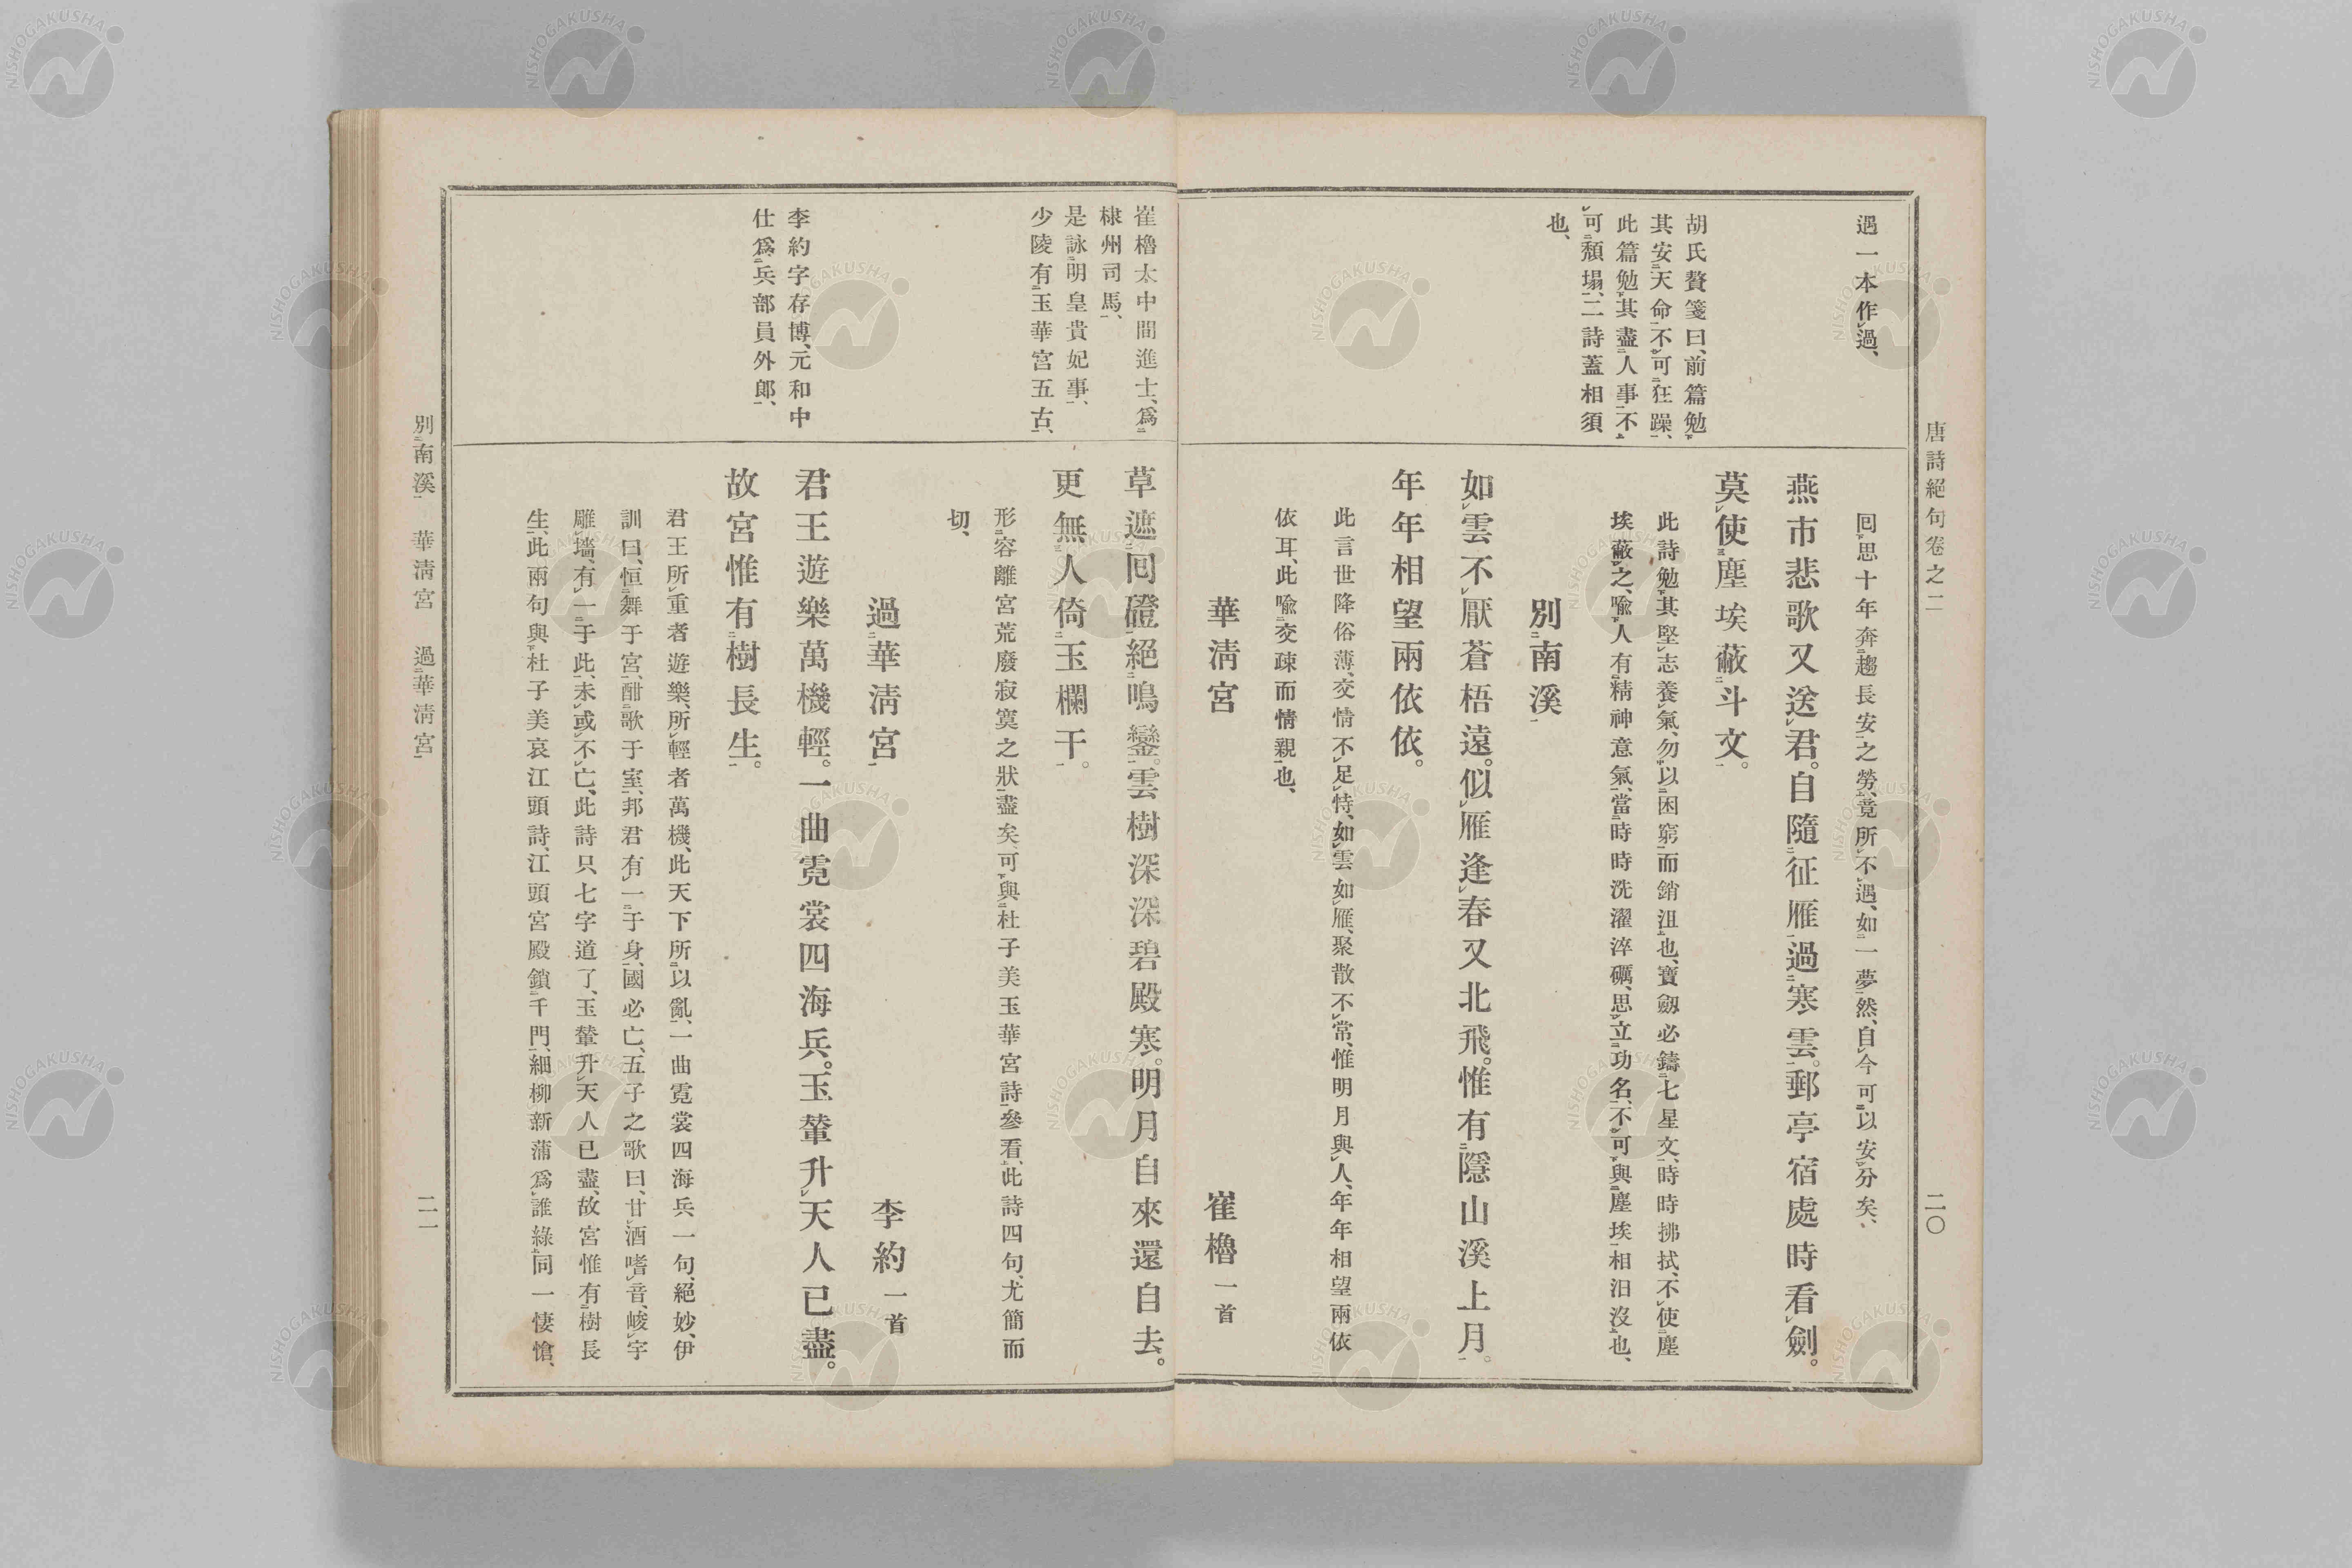 唐詩絕句卷之二
二〇
遇一本作過、
胡氏贅箋曰、前篇勉
其安天命、不可狂躁、
此篇勉其盡人事、不
可頹塌、二詩蓋相須
也、
回思十年奔趨長安之勞、竟所不遇、如一夢然、自今可以安分矣、
燕市悲歌又送君。自隨征雁過寒雲。郵亭宿處時看劍。
莫使塵埃蔽斗文。
此詩勉其堅志養氣、勿以困窮而銷沮也、寶劔必鑄七星文、時時拂拭、不使塵
埃蔽之、喩人有精神意氣、當時時洗濯淬礪、思立功名、不可與塵埃相汨沒也、
別南溪
如雲不厭蒼梧遠。似雁逢春又北飛。惟有隱山溪上月。
年年相望兩依依。
此言世降俗薄、交情不足恃、如雲如雁、聚散不常、惟明月與人、年年相望兩依
依耳、此喩交疎而情親也、
華淸宮 崔櫓一首
崔櫓太中間進士、爲
棣州司馬、
是詠明皇貴妃事、
少陵有玉華宮五古、
李約字存博、元和中
仕爲兵部員外郞、
草遮回磴絕鳴鑾。雲樹深深碧殿寒。明月自來還自去。
更無人倚玉欄干。
形容離宮荒廢寂寞之狀盡矣、可與杜子美玉華宮詩參看、此詩四句、尤簡而
切、
過華淸宮 李約一首
君王遊樂萬機輕。一曲霓裳四海兵。玉輦升天人已盡。
故宮惟有樹長生。
君王所重者遊樂、所輕者萬機、此天下所以亂、一曲霓裳四海兵一句、絕妙、伊
訓曰、恒舞于宮、酣歌于室、邦君有一于身、國必亡、五子之歌曰、甘酒嗜音、峻宇
雕墻、有一于此、未或不亡、此詩只七字道了、玉輦升天人已盡、故宮惟有樹長
生、此兩句與杜子美哀江頭詩、江頭宮殿鎖千門、細柳新蒲爲誰綠、同一悽愴、
別南溪 華淸宮 過華淸宮
二一